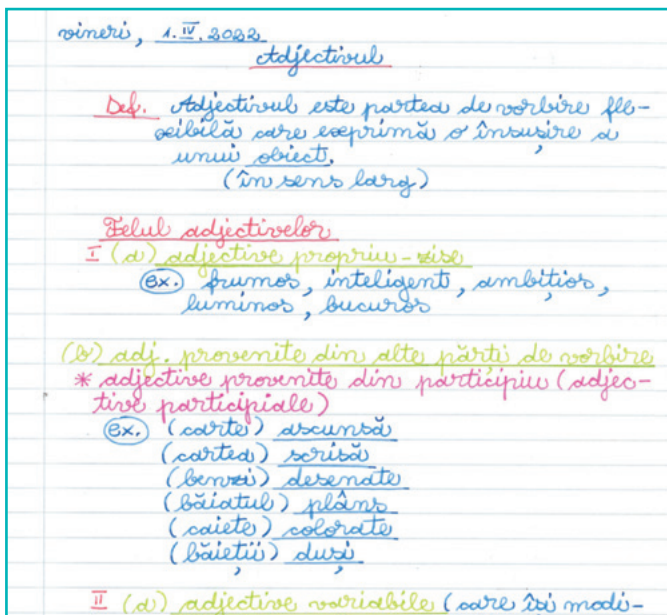 vineri, 1.IV.2022
Adjectivul
Def. Adjectivul este partea de vorbire fle-
xibilă care exprimă o însușire a
unui obiect.
(în sens larg)
Felul adjectivelor
I (a) adjective propriu-zise
ex. frumos, inteligent, ambițios,
luminos, bucuros
(b) adj. provenite din alte părți de vorbire
* adjective provenite din participiu (adjec-
tive participiale)
ex. (carte) ascunsă
(cartea) scrisă
(benzi) desenate
(băiatul) plâns
(caiete) colorate
(băieții) duși
II (a) adjective variabile (care își modi-